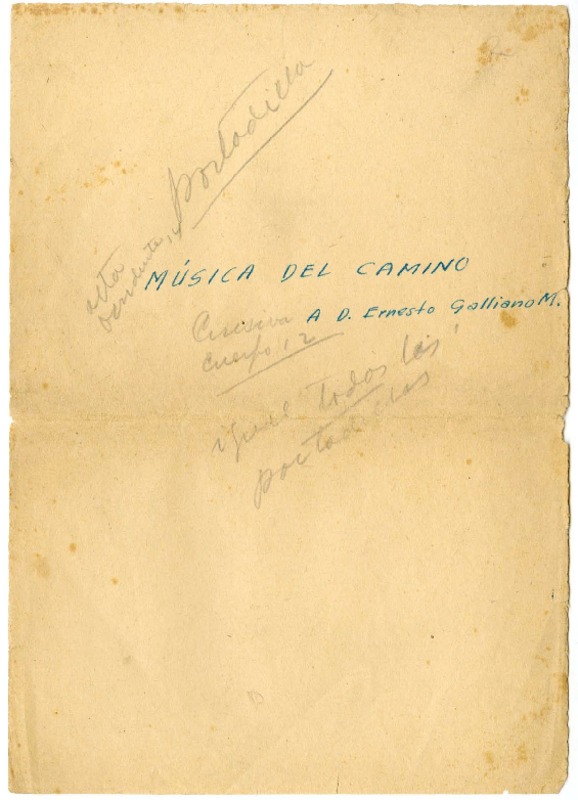 portadilla
alta
MÚSICA DEL CAMINO
Cursiva
A D. Ernesto Galliano M.
cuerpo 12
igual todas las
portadillas